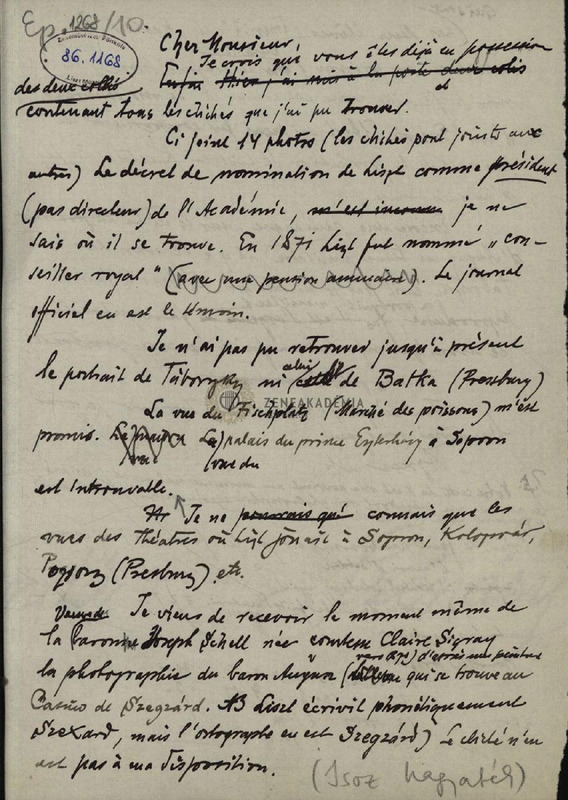 Ep. 1268/10.
86.1168
Cher Monsieur,
Je crois que vous êtes déjà en possession
Enfin Hier j'ai mis à la poste deux colis
des deux colis et
contenant tous les clichés que j'ai pu trouver.
Ci joint 14 photos (les clichés sont joints aux
autres) Le décret de nomination de Liszt comme président
(pas directeur) de l'Académie, m'est inconnu je ne
sais où il se trouve. En 1871 Liszt fut nommé „con-
seiller royal" (avec une pension annuaire). Le journal
officiel en est le témoin.
Je n'ai pas pu retrouver jusqu'à présent
le portrait de Táborszky ni celui de Batka (Presburg)
ZENEAKADÉMIA
La vue du Fischplatz (Marché des poissons) m'est
promis. La) palais du prince Eszterházy à Sopron
(vue du
est introuvable.
Je ne pourrais qué connais que les
vues des Théâtres où Liszt jouait à Sopron, Kolozsvár,
Pozsony (Presburg) etc.
Je viens de recevoir le moment même de
la baronne Joseph Schell née comtesse Claire Sigray
la photographie du baron Augusz (d'après une peinture
qui se trouve au
Casino de Szegzárd. NB Liszt écrivit phonétiquement
Szexard, mais l'ortographe en est Szegzárd) Le cliché n'en
est pas à ma disposition.
(Isoz hagyaték)